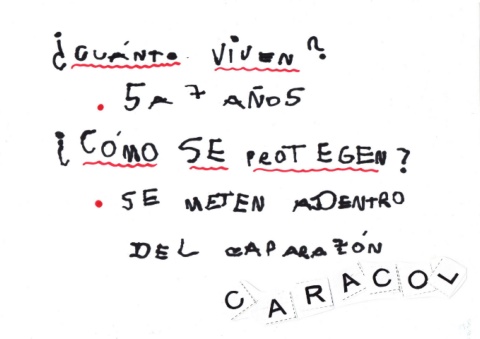 ¿CUÁNTO VIVEN?
• 5 A 7 AÑOS
¿CÓMO SE PROTEGEN?
• SE METEN ADENTRO
DEL CAPARAZÓN
CARACOL